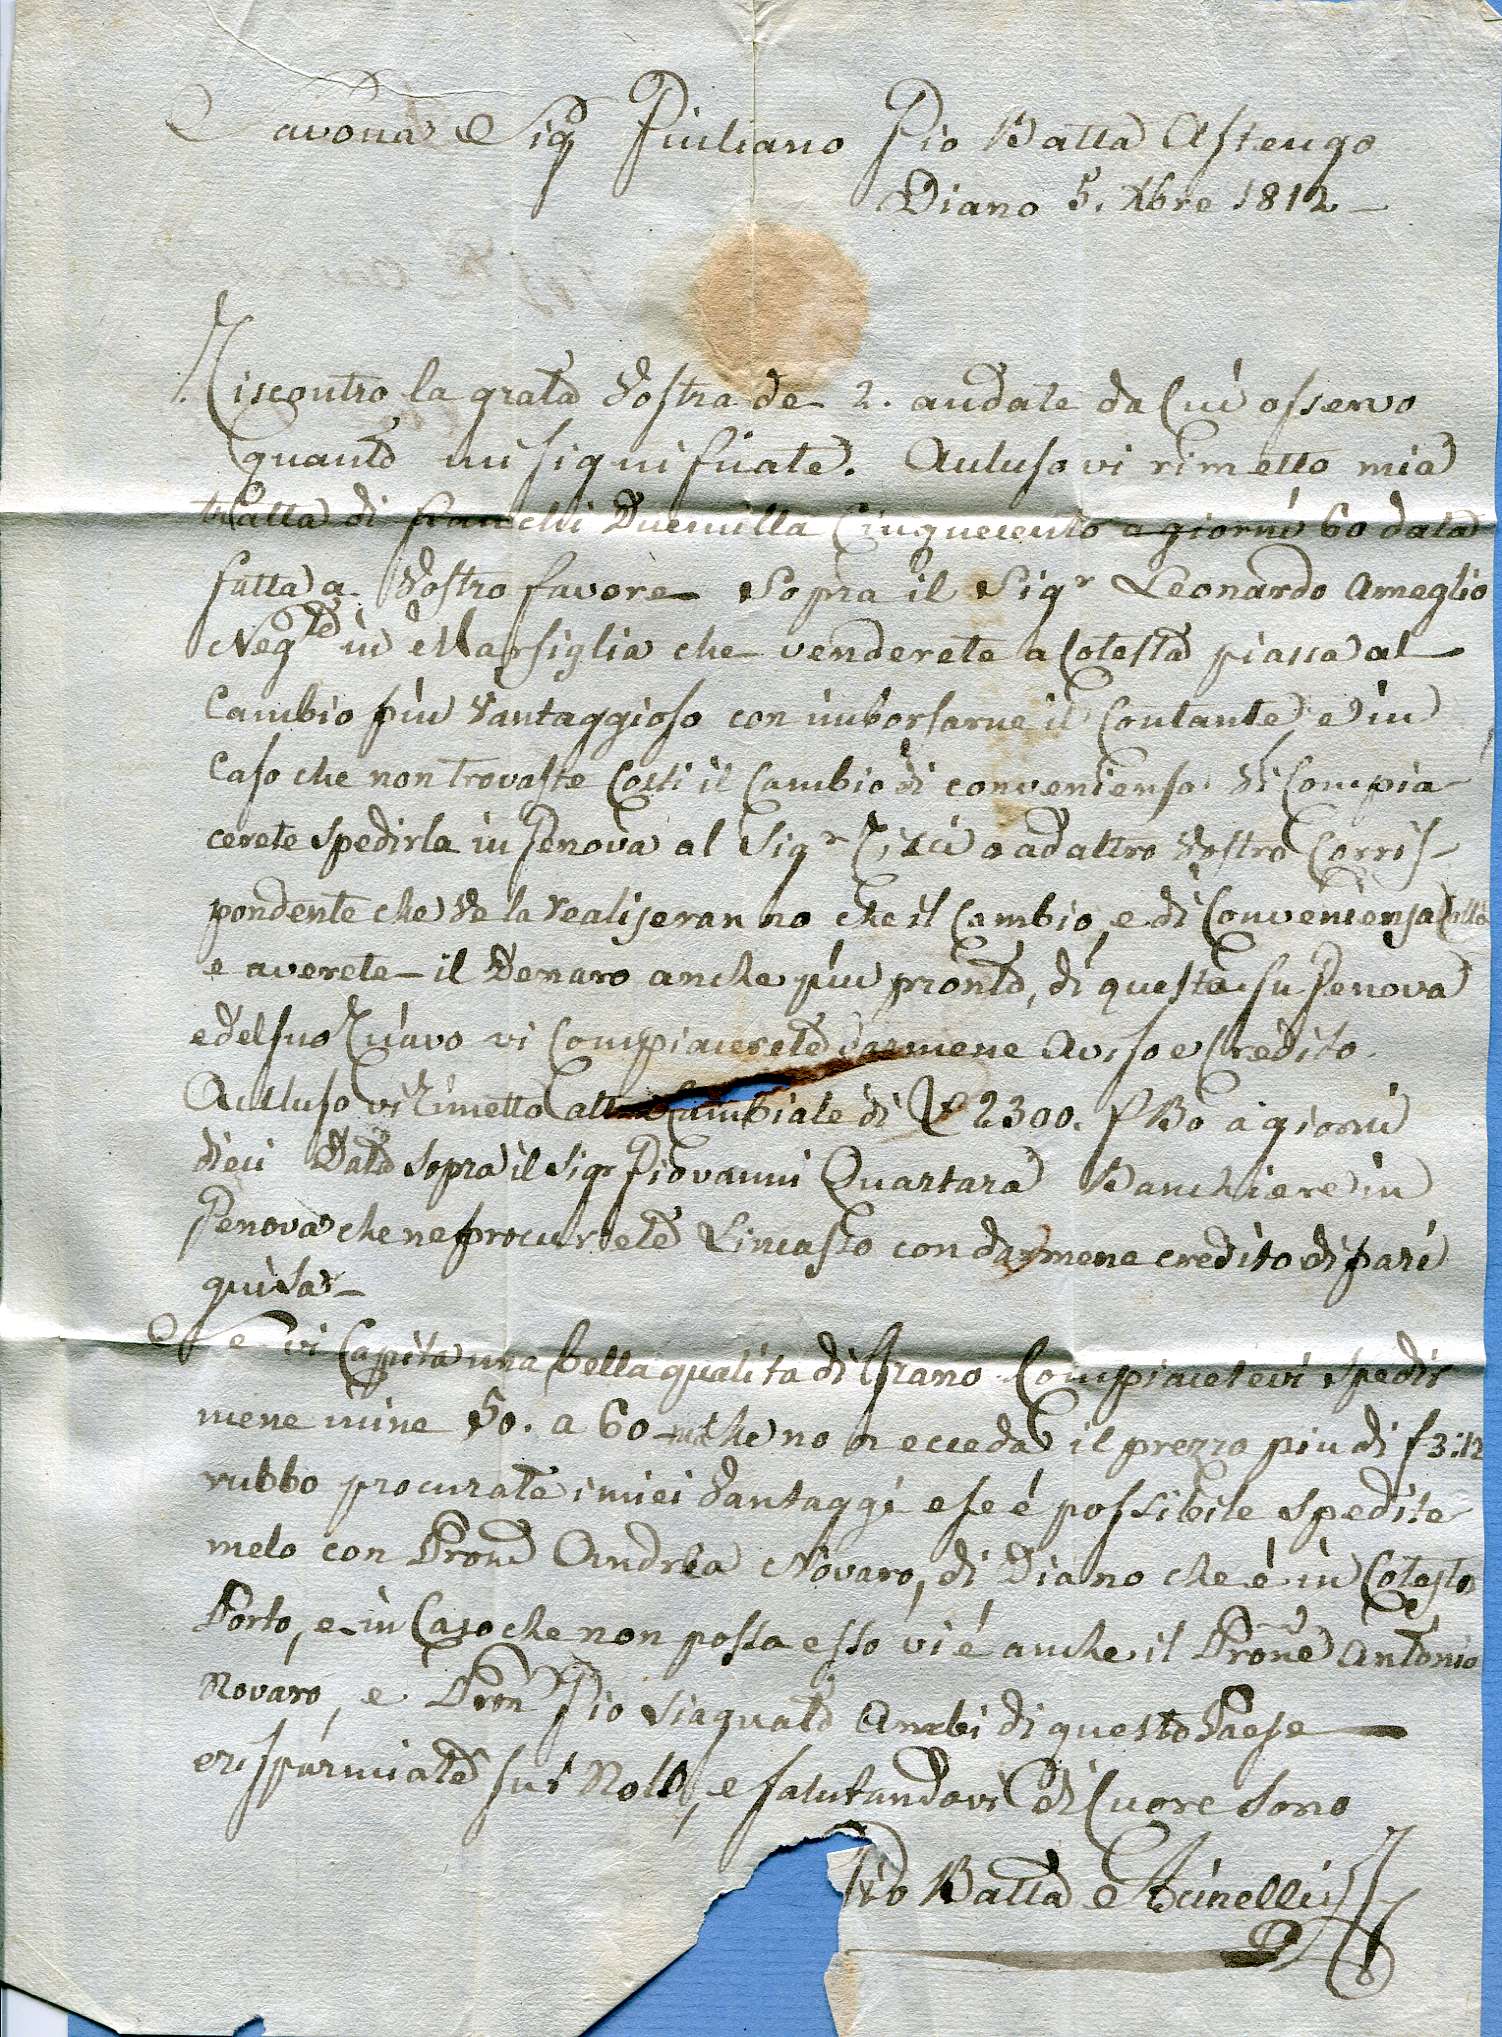 Savona Sigr Giuliano Gio Batta Astengo
Diano 5. Xbre 1812
Riscontro la grata Vostra de 2. andate da cui osservo
quanto mi significate. Accluso vi rimetto mia
tratta di franchi Duemilla Cinquecento a giorni 60 data
fatta a Vostro favore sopra il Sigr Leonardo Ameglio
Negte in Marsiglia che venderete a Cotesta piassa al
Cambio più Vantaggioso con imborsarne il Contante, e in
Caso che non trovaste Costi il Cambio di conveniensa Vi Compia
cerete spedirla in Genova al Sigr o ad altro Vostro Corris
pondente che Ve la realiseranno che il Cambio, e di Conveniensa
e averete il Denaro anche più pronto, di questa su Genova
e del suo vi Compiacerete darmene Aviso e Credito.
Accluso vi rimetto altra Cambiale di 2300. f Bo a giorni
dieci Data sopra il Sigr Giovanni Quartara Banchiere in
Genova che ne procurerete Lincasso con darmene credito di pari
guisa
Se vi Capita una bella qualita di Grano Compiacetevi spedir
mene mine 50. a 60 che no n ecceda il prezzo piu di f 3:12
rubbo procurate i miei Vantaggi e se é possibile spedite
melo con Prone Andrea Novaro, di Diano che é in Cotesto
Porto, e in Caso che non possa esso vi é anche il Prone Antonio
Novaro, e Pron Gio Siaguato Ambi di questo Paese
e risparmiate sui Noli, e salutandovi di Cuore sono
Gio Batta